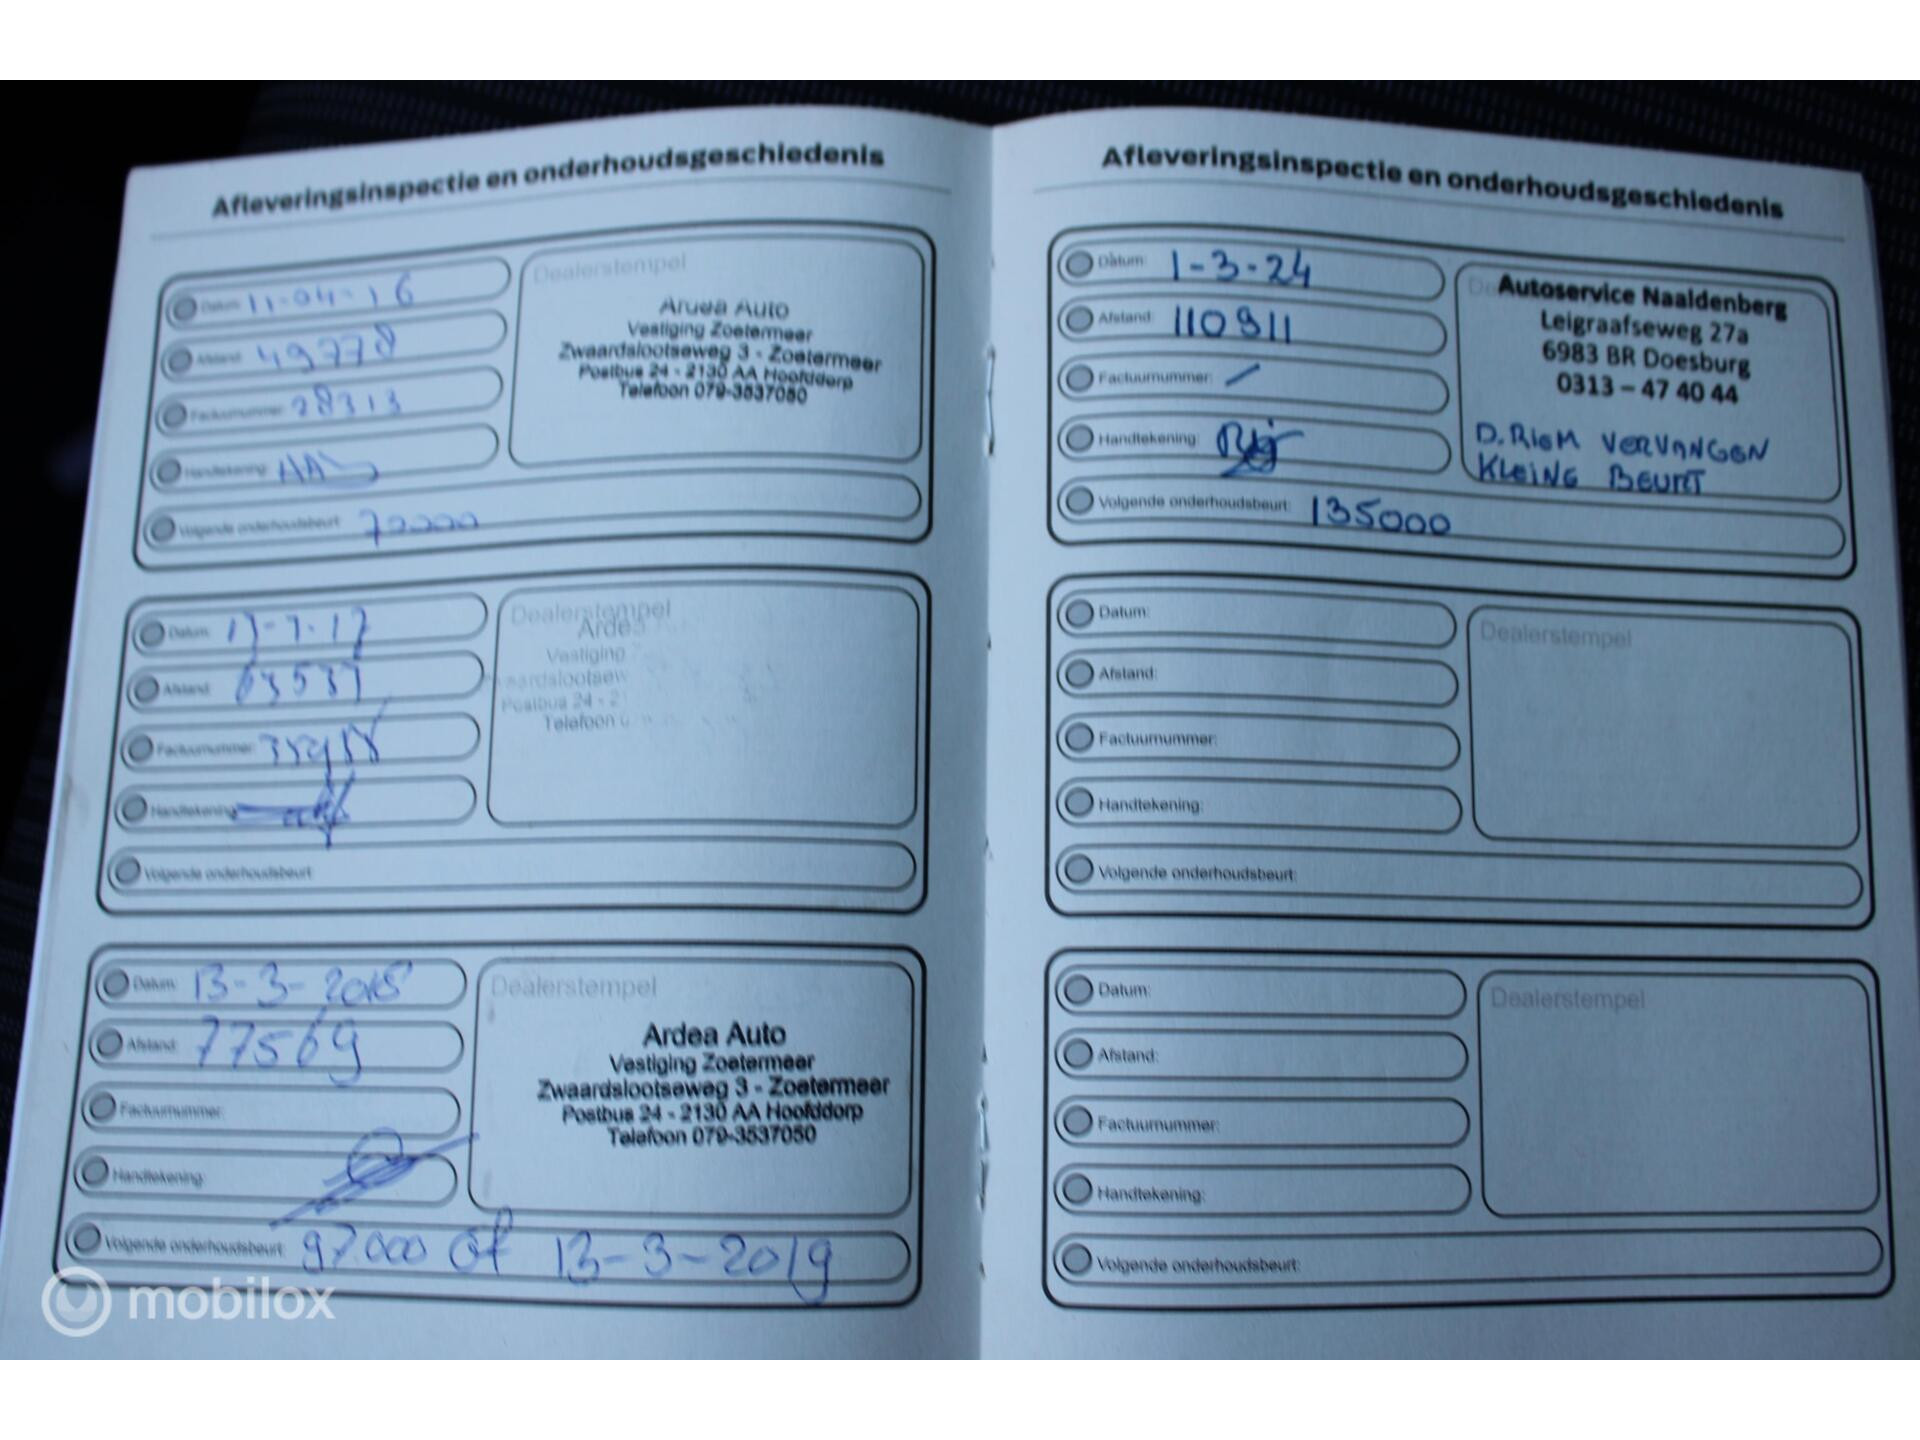 Afleveringsinspectie en onderhoudsgeschiedenis
Datum: 11-04-16
Afstand: 49778
Factuurnummer: 28313
Handtekening:
Volgende onderhoudsbeurt: 70000
Dealerstempel
Ardea Auto
Vestiging Zoetermeer
Zwaardslootseweg 3 - Zoetermeer
Postbus 24 - 2130 AA Hoofddorp
Telefoon 079-3537050
Datum:
Afstand:
Factuurnummer:
Handtekening:
Volgende onderhoudsbeurt:
Dealerstempel
Ardea
Vestiging
aardslootsew
Postbus 24 - 2
Telefoon 0
Datum: 13-3-2018
Afstand: 77569
Factuurnummer:
Handtekening:
Volgende onderhoudsbeurt: 97.000 of 13-3-2019
Dealerstempel
Ardea Auto
Vestiging Zoetermeer
Zwaardslootseweg 3 - Zoetermeer
Postbus 24 - 2130 AA Hoofddorp
Telefoon 079-3537050
mobilox
Afleveringsinspectie en onderhoudsgeschiedenis
Datum: 1-3-24
Afstand: 110911
Factuurnummer: /
Handtekening:
Volgende onderhoudsbeurt: 135000
Autoservice Naaldenberg
Leigraafseweg 27a
6983 BR Doesburg
0313 – 47 40 44
D.RIEM VERVANGEN
KLEINE BEURT
Datum:
Afstand:
Factuurnummer:
Handtekening:
Volgende onderhoudsbeurt:
Dealerstempel
Datum:
Afstand:
Factuurnummer:
Handtekening:
Volgende onderhoudsbeurt:
Dealerstempel